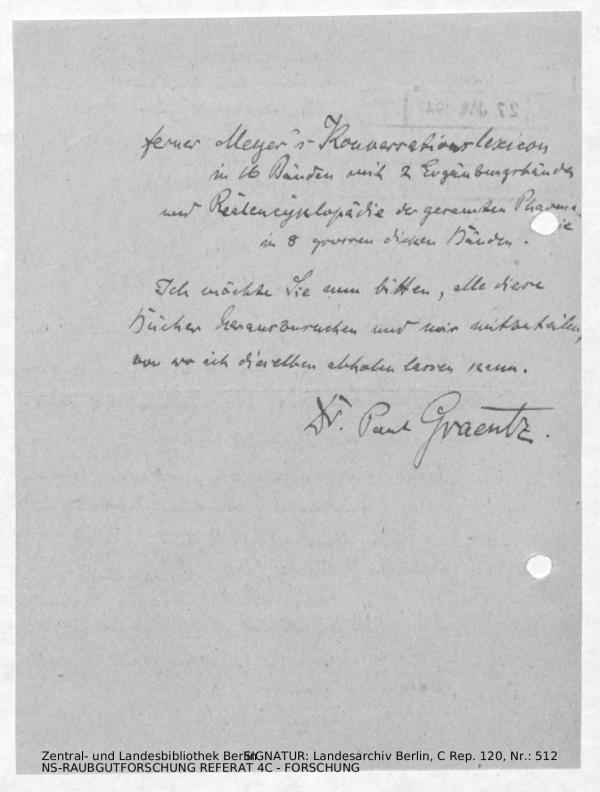 27. JAN. 194
ferner Meyer's Konversationslexicon
in 16 Bänden mit 2 Ergänzungsbänden
und Realencyklopädie der gesamten Pharma-
zie
in 8 grossen dicken Bänden.
Ich möchte Sie nun bitten, alle diese
Bücher herauszusuchen und mir mitzuteilen,
von wo ich dieselben abholen lassen kann.
Dr. Paul Graentz.
Zentral- und Landesbibliothek Berlin SIGNATUR: Landesarchiv Berlin, C Rep. 120, Nr.: 512
NS-RAUBGUTFORSCHUNG REFERAT 4C - FORSCHUNG